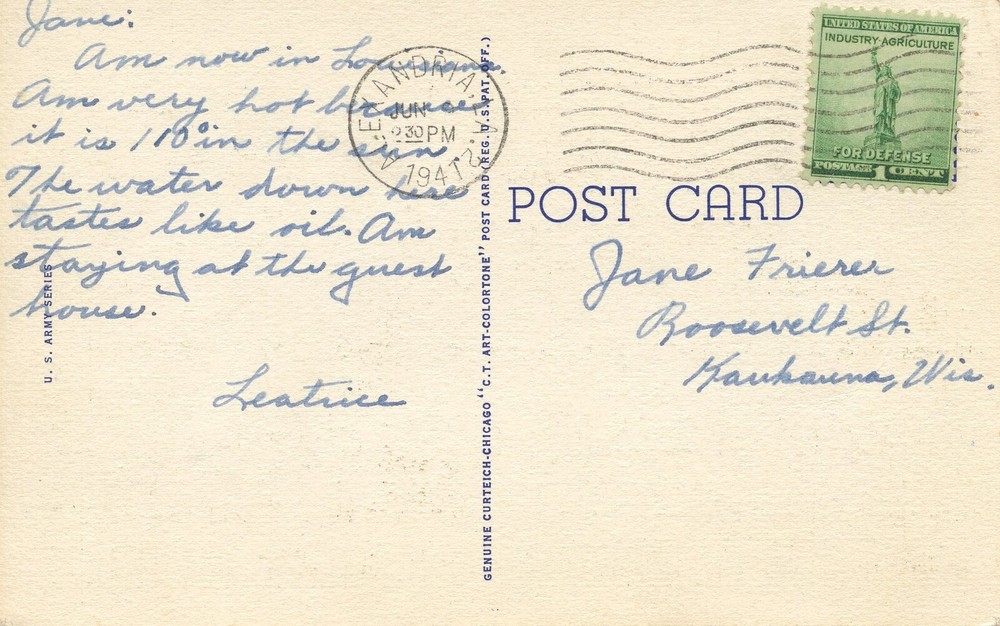 Jane:
Am now in Louisiana.
Am very hot because
it is 110° in the sun
The water down here
tastes like oil. Am
staying at the guest
house.
Leatrice
U. S. ARMY SERIES
ALEXANDRIA, LA.
JUN
2 30 PM
1941
GENUINE CURTEICH-CHICAGO "C. T. ART-COLORTONE" POST CARD (REG. U. S. PAT. OFF.)
POST CARD
UNITED STATES OF AMERICA
INDUSTRY·AGRICULTURE
FOR DEFENSE
POSTAGE 1 CENT
Jane Frierer
Roosevelt St.
Kaukauna, Wis.